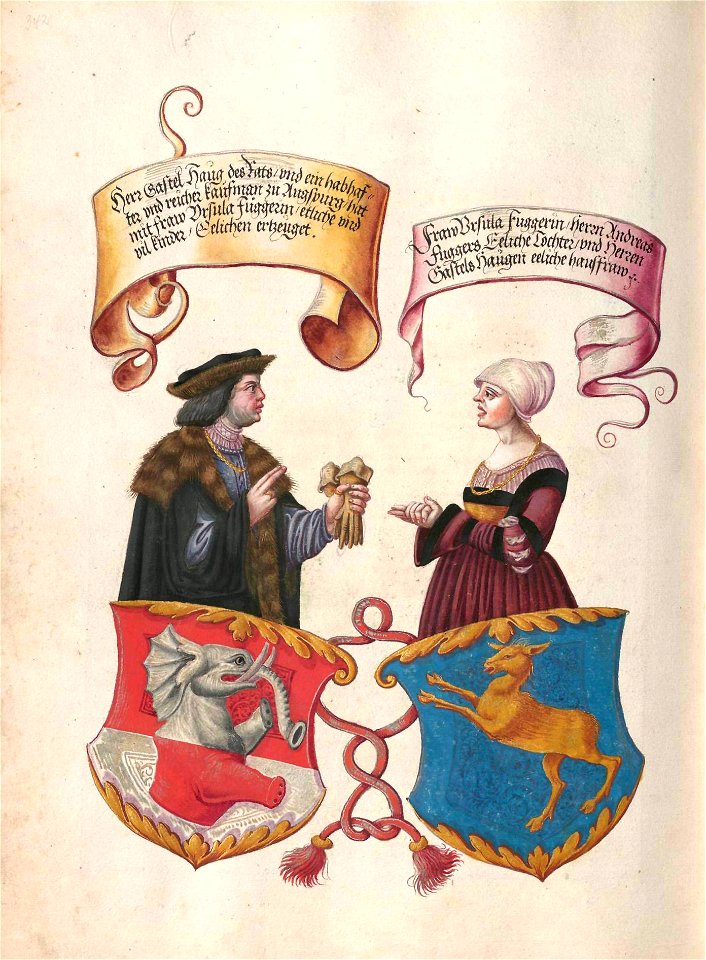 Herr Gastel Haug des Rats / vnd ein habhaf-
ter vnd reicher kaufman zu Augspurg / hat
mit fraw Vrsula Fuggerin / etliche vnd
vil kinder / Eelichen erzeuget .
Fraw Vrsula Fuggerin / Herrn Andreas
Fuggers Eeliche Tochter / vnd Herren
Gastels Haugen eeliche hausfraw .